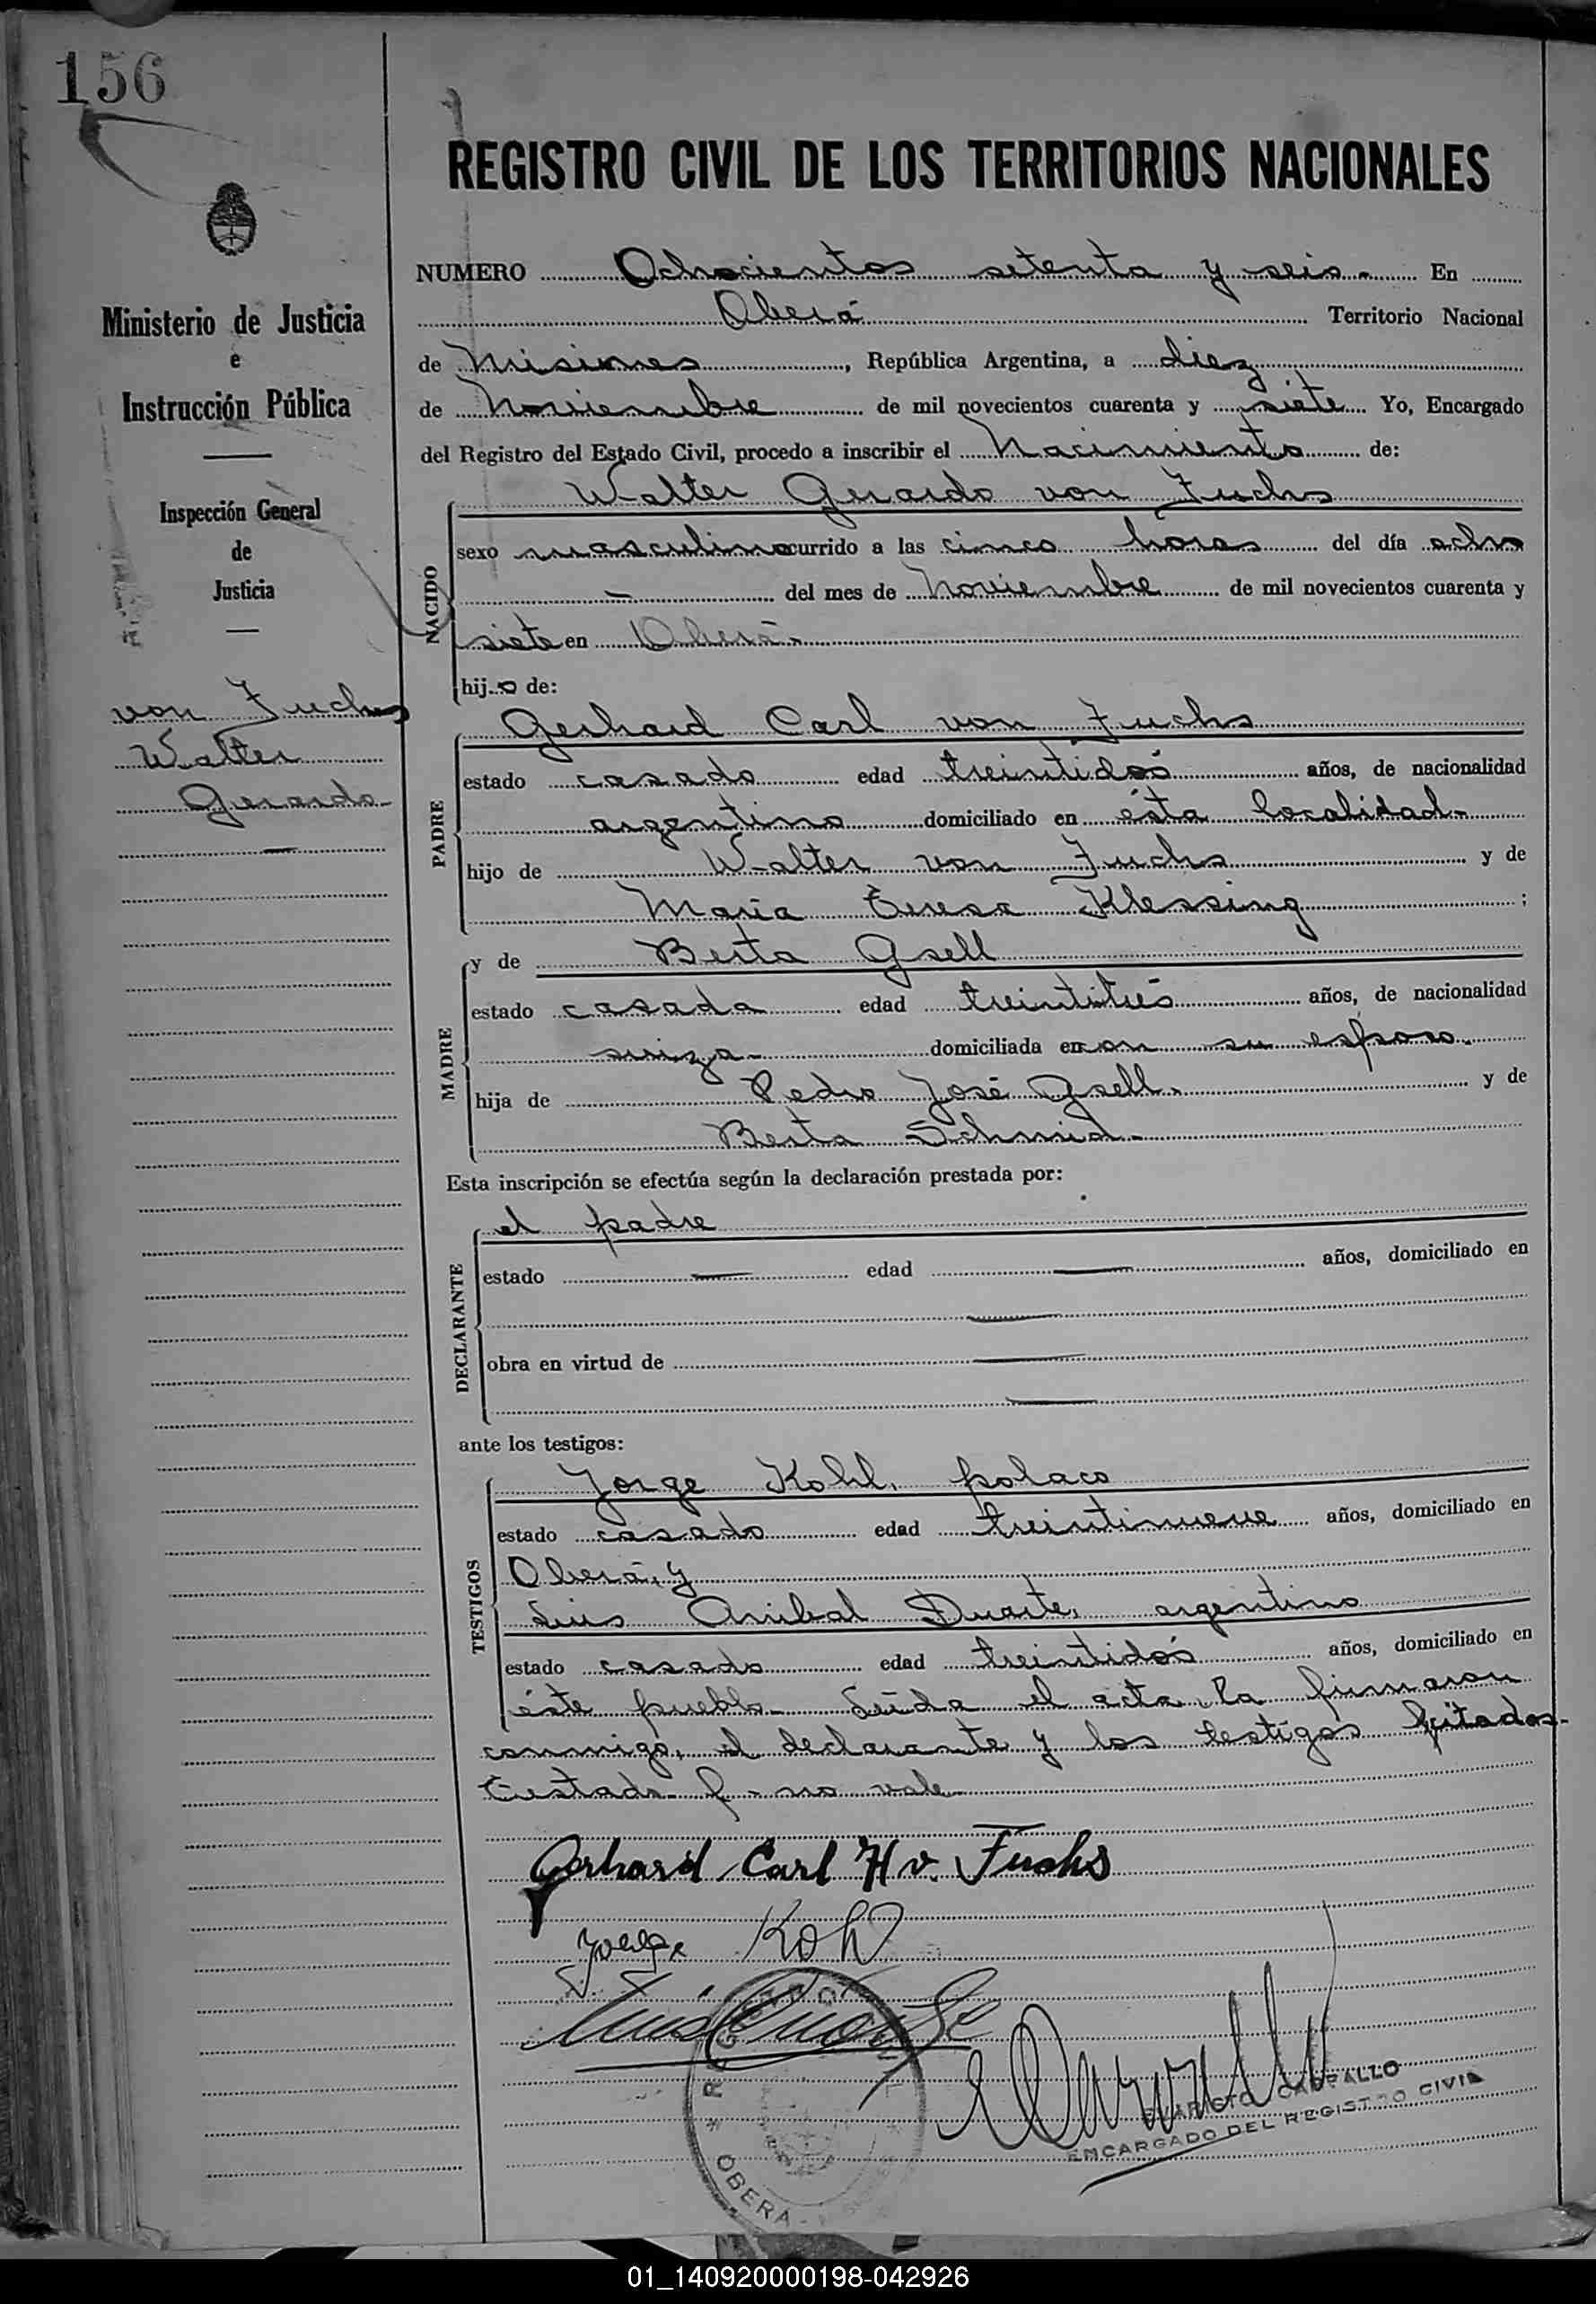 156
REGISTRO CIVIL DE LOS TERRITORIOS NACIONALES
Ministerio de Justicia
e
Instrucción Pública
Inspección General
de
Justicia
von Fuchs
Walter
Gerardo
NUMERO Ochocientos setenta y seis.- En
Oberá Territorio Nacional
de Misiones, República Argentina, a diez
de Noviembre de mil novecientos cuarenta y siete Yo, Encargado
del Registro del Estado Civil, procedo a inscribir el Nacimiento de:
NACIDO
Walter Gerardo von Fuchs
sexo masculino ocurrido a las cinco horas del día ocho
— del mes de Noviembre de mil novecientos cuarenta y
siete en Oberá.-
hijo de:
PADRE
Gerhard Carl von Fuchs
estado casado edad treintidós años, de nacionalidad
argentino domiciliado en ésta localidad.-
hijo de Walter von Fuchs y de
María Teresa Klessing ;
MADRE
y de Berta Gsell
estado casada edad treintitrés años, de nacionalidad
suiza.- domiciliada en con su esposo.-
hija de Pedro José Gsell.- y de
Berta Schmid.-
Esta inscripción se efectúa según la declaración prestada por:
DECLARANTE
el padre
estado — edad — años, domiciliado en
—
obra en virtud de —
—
ante los testigos:
TESTIGOS
Jorge Kohl, polaco
estado casado edad treintinueve años, domiciliado en
Oberá, y
Luis Anibal Duarte, argentino
estado casado edad treintidós años, domiciliado en
éste pueblo.- Leída el acta, la firmaron
conmigo, el declarante y los testigos citados.-
Testado- f - no vale
Gerhard Carl H v. Fuchs
Jorge Kohl
REGISTRO CIVIL
* OBERA -
EVARISTO CARVALLO
ENCARGADO DEL REGISTRO CIVIL
01_140920000198-042926